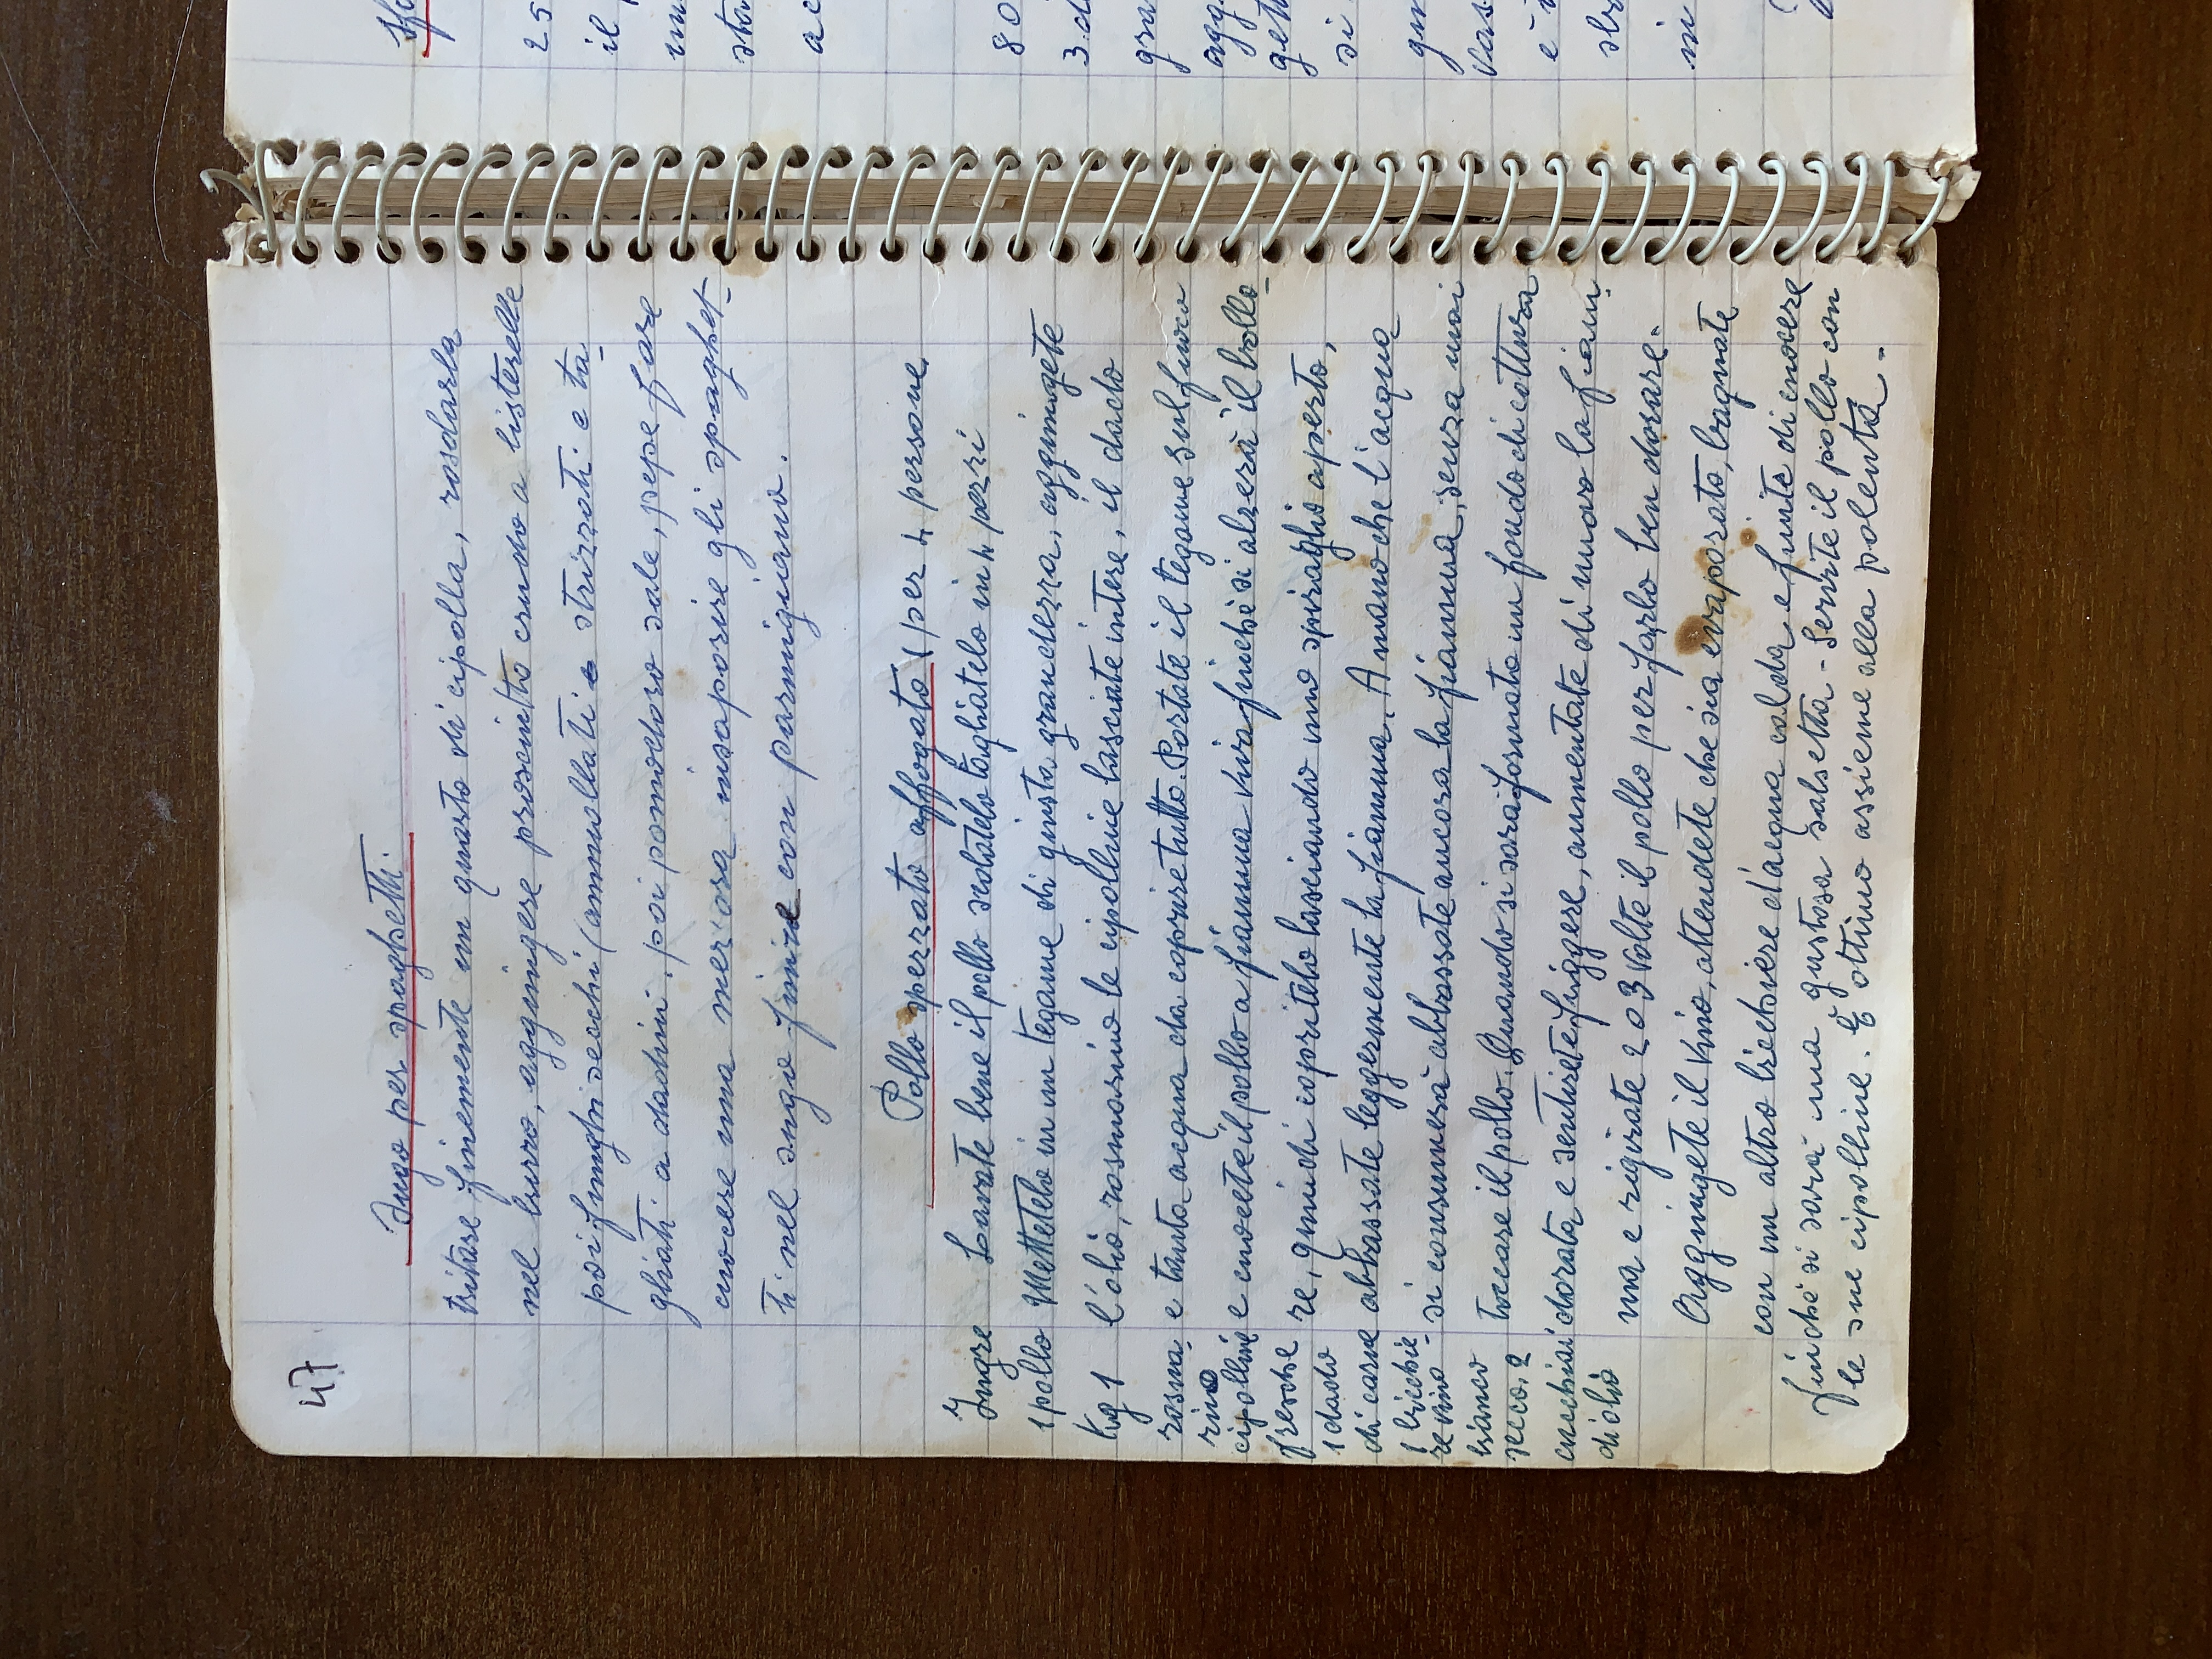 47
Sugo per spaghetti
tritare finemente un quarto di cipolla, rosolarla
nel burro, aggiungere prosciutto crudo a listerelle
poi funghi secchi (ammollati e strizzati e ta-
gliati a dadini, poi pomodoro sale, pepe fare
cuocere una mez'ora insaporire gli spaghet-
ti nel sugo finire con parmigiano.
Pollo spezzato affogato (per 4 persone
Ingre
1 pollo
Kg 1
rosma-
rino
cipolline
fresche
1 dado
di carne
1 bicchie-
re vino
bianco
secco, 2
cucchiai
di olio
Lavate bene il pollo salatelo tagliatelo in 4 pezzi
Mettetelo in un tegame di giusta grandezza, aggiungete
l'olio, rosmarino le cipolline lasciate intere, il dado
e tanta acqua da coprire tutto. Portate il tegame sul fuoco
e cuocete il pollo a fiamma viva finchè si alzerà il bollo-
re, quindi copritelo lasciando uno spiraglio aperto,
abbassate leggermente la fiamma. A mano che l'acqua
si consumerà abbassate ancora la fiamma, senza mai
toccare il pollo. Quando si sarà formato un fondo di cottura
dorata e sentirete friggere, aumentate di nuovo la fiam-
ma e rigirate 2 o 3 volte il pollo per farlo ben dorare.
Aggiungete il vino, attendete che sia evaporato, bagnate
con un altro bicchiere d'acqua calda e finite di cuocere
finchè si sarà una gustosa salsetta - Servite il pollo con
le sue cipolline. È ottimo assieme alla polenta.
25
il
sta
80
3 d
gra
agg
gett
si
vas
è
in